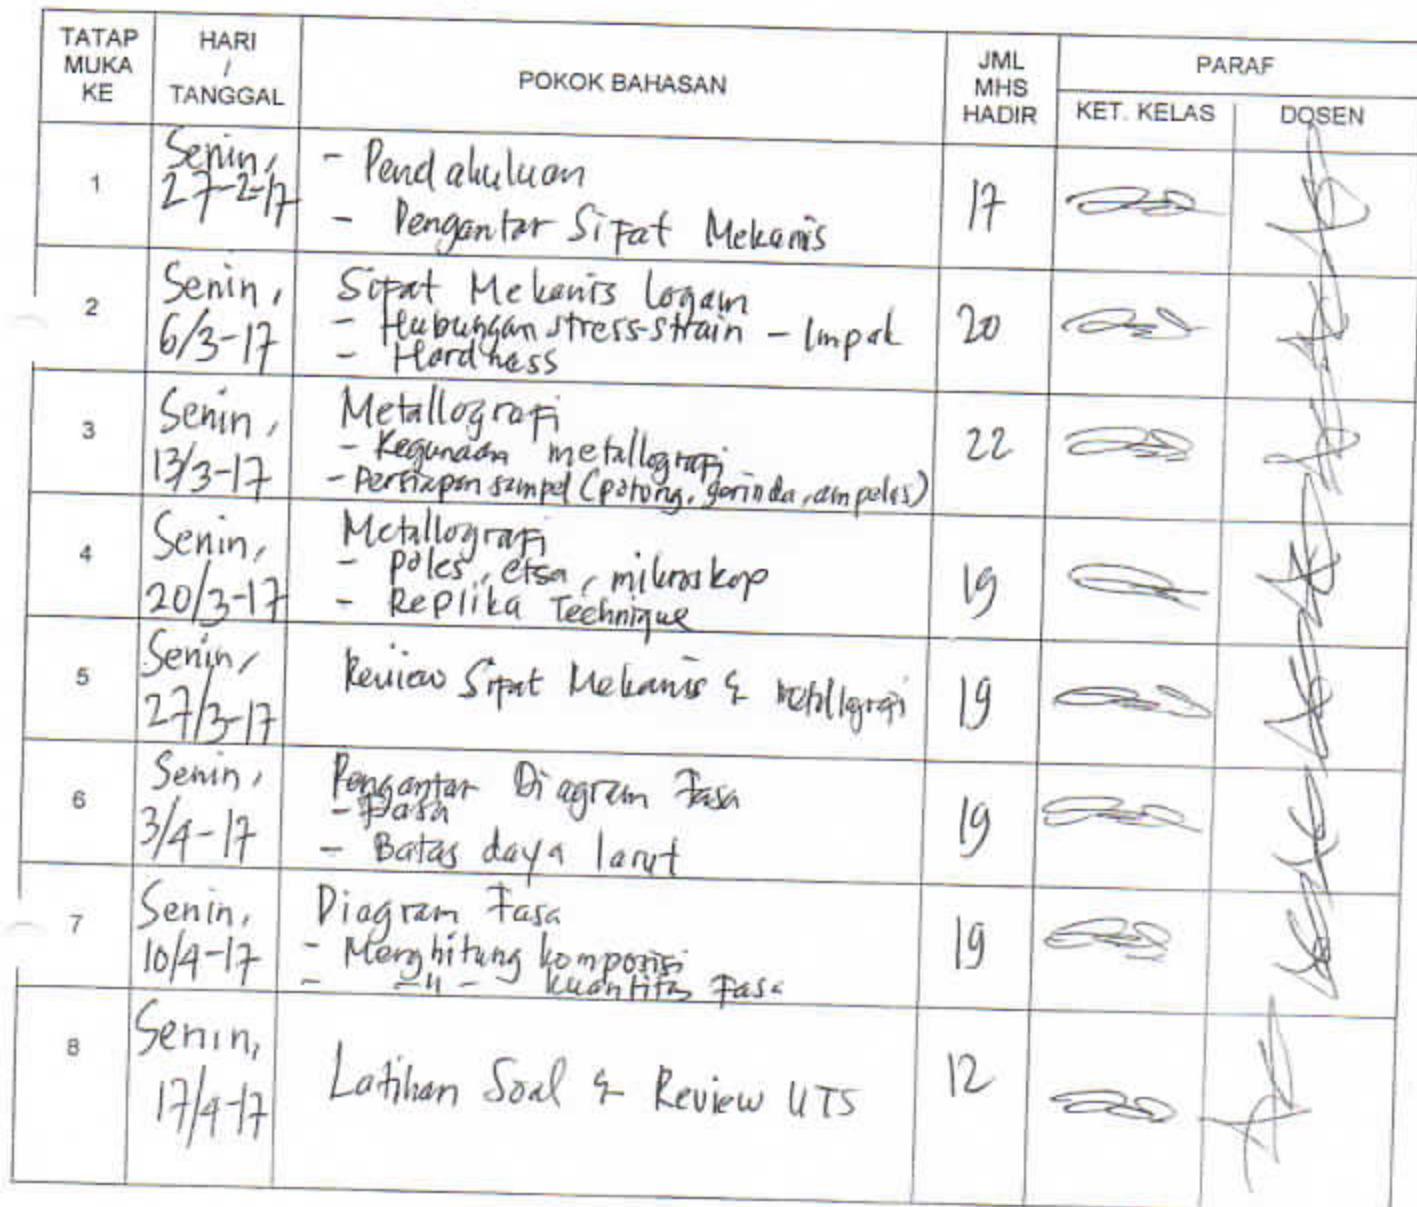 TATAP MUKA KE
HARI / TANGGAL
POKOK BAHASAN
JML MHS HADIR
PARAF
KET. KELAS
DOSEN
1
Senin,
27-2-17
- Pendahuluan
- Pengantar Sifat Mekanis
17
2
Senin,
6/3-17
Sifat Mekanis logam
- Hubungan stress-strain - Impak
- Hardness
20
3
Senin,
13/3-17
Metallografi
- Kegunaan metallografi
- Persiapan sampel (potong, gerinda, ampelas)
22
4
Senin,
20/3-17
Metallografi
- Poles, etsa, mikroskop
- Replika Technique
19
5
Senin,
27/3-17
Review Sifat Mekanis & metallografi
19
6
Senin,
3/4-17
Pengantar Diagram Fasa
- Fasa
- Batas daya larut
19
7
Senin,
10/4-17
Diagram Fasa
- Menghitung komposisi
- -"- kuantitas Fasa
19
8
Senin,
17/4-17
Latihan Soal & Review UTS
12